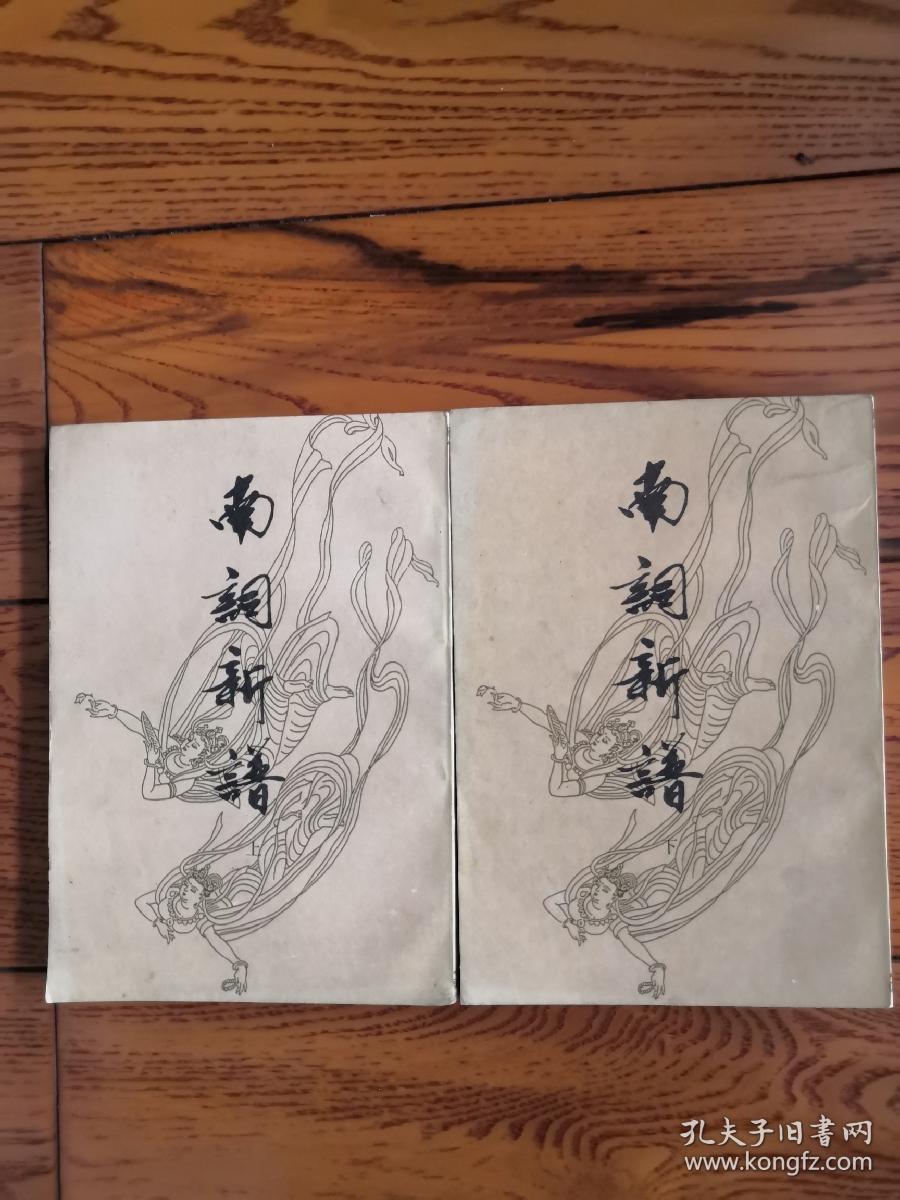 南詞新譜
上
南詞新譜
下
孔夫子旧书网
www.kongfz.com